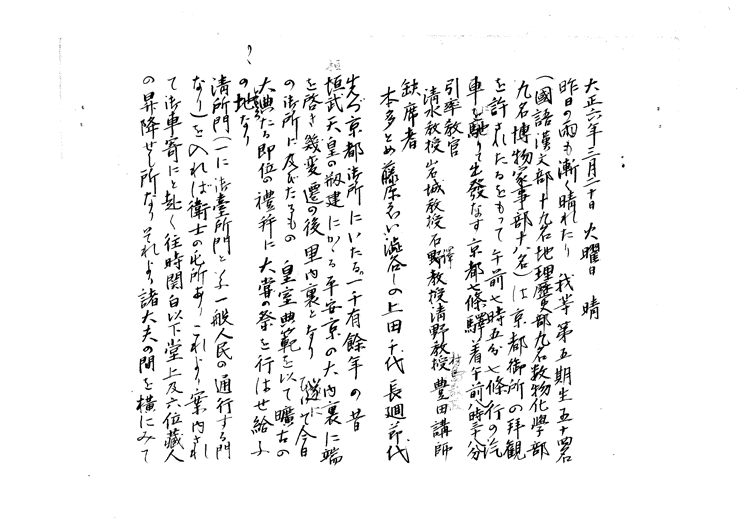 大正六年三月二十日 火曜日 晴
昨日の雨も漸く晴れたり 我等第五期生五十四名
(國語漢文部十九名地理歴史部九名数物化學部
九名博物家事部十八名)は京都御所の拝観
を許されたるをもつて午前七時五分七條行の汽
車を馳りて出發なす 京都七條驛着午前八時三十分
引率教官
清水教授岩城教授石野教授清野教授 豊田講師
欠席者
本多とめ 藤原 澁谷しの 上田千代 長廻節代
先づ京都御所にいたる 一千有餘年の昔
垣武天皇の剏建にかゝる平安京の大内裏に端
を啓き幾変遷の後里内裏となり 遂に今日
の御所に及びたるもの 皇室典範を以て曠古の
大典たる即位の禮幷に大嘗の祭を行はせ給ふ
の地なり
清所門(一に御臺所門と云ふ一般人民の通行する門
なり)を入れば衛士の屯所ありこれより案内され
て御車寄にと赴く往時関白以下堂上及六位藏人
の昇降せし所なりそれより諸大夫の間を横にみて